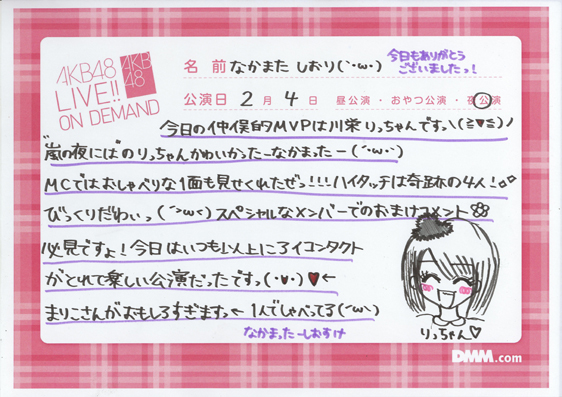 AKB48
LIVE!!
ON DEMAND
AKB
48
名 前 なかまた しおり(´･ω･)
今日もありがとう
ございましたっ!
公演日 2 月 4 日 昼公演・おやつ公演・夜公演
今日の仲俣的MVPは川栄りっちゃんですっ\(≧♥≦)ノ
"嵐の夜には"のりっちゃんかわいかったーなかまったー(´･ω･)
MCではおしゃべりな1面も見せくれたぜっ!!!ハイタッチは奇跡の4人!。
びっくりだわいっ(´>ω<)スペシャルなメンバーでのおまけコメント
必見ですよ!今日はいつも以上にアイコンタクト
がとれて楽しい公演だったですっ(･ω･)♥←
まりこさんがおもしろすぎますっ←1人でしゃべってる(´ω`)
なかまったーしおすけ
りっちゃん♡
DMM.com